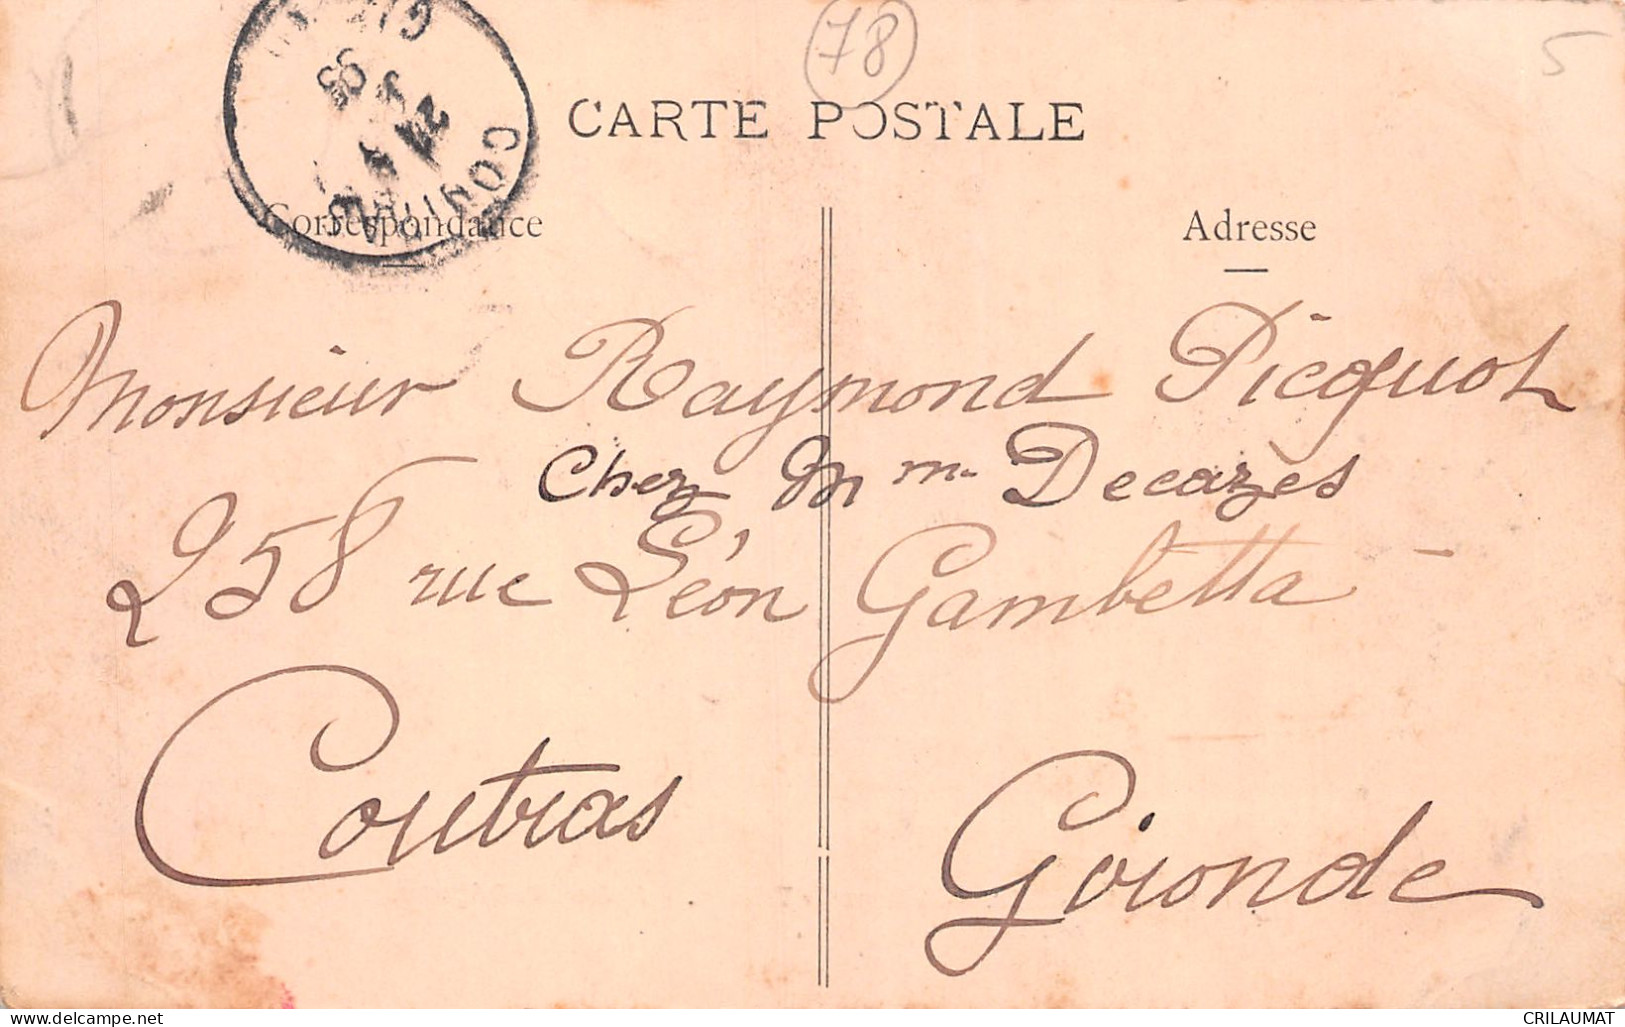 78
5
CARTE POSTALE
Correspondance
Adresse
Monsieur Raymond Picquot
Chez Mme Decazès
258 rue Léon Gambetta
Coutras
Gironde
www.delcampe.net
CRILAUMAT